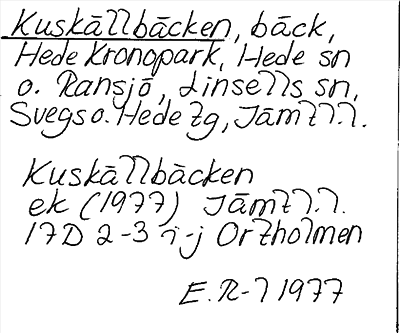 Kuskällbäcken, bäck,
Hede Kronopark, Hede sn
o. Ransjö, Linsells sn,
Svegs o. Hede tg, Jämtl.l.
Kuskällbäcken
ek (1977) Jämtl.l.
17D 2-3 i-j Ortholmen
E.R-l 1977